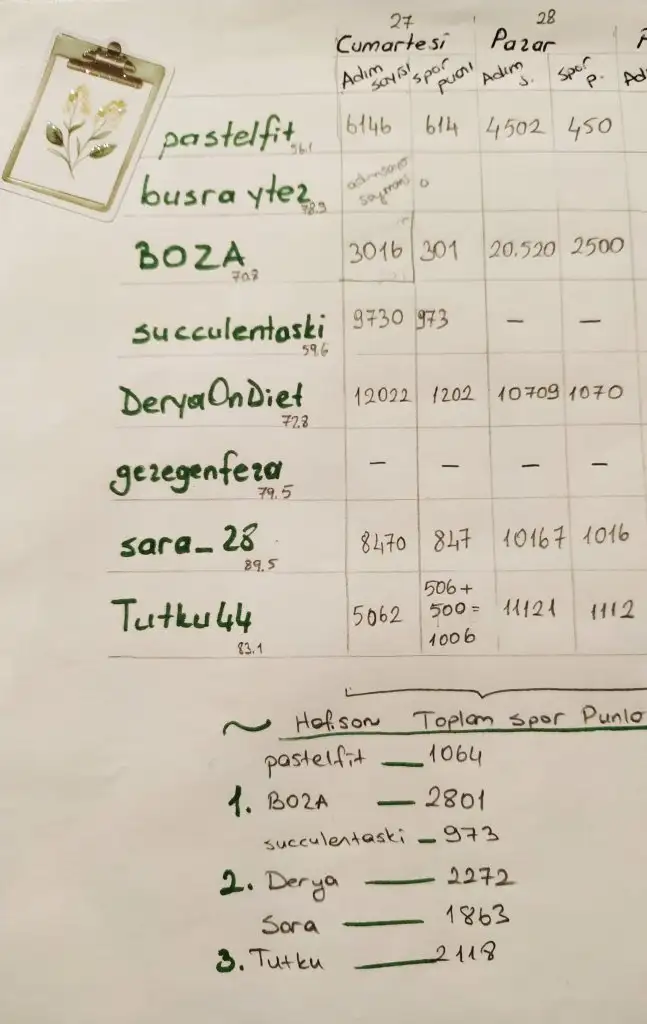 27 28
Cumartesi Pazar
Adım sayısı spor puanı Adım s. spor p. Ad
pastelfit 56.1 6146 614 4502 450
busra ytez 78.9 0
BOZA 70.8 3016 301 20.520 2500
succulentaski 59.6 9730 973 — —
DeryaOnDiet 72.8 12022 1202 10709 1070
gezegenfeza 79.5 — — — —
sara_28 89.5 8470 847 10167 1016
Tutku44 83.1 5062 506+ 500= 1006 11121 1112
~ Haf.son Toplam spor Punla
pastelfit — 1064
1. BOZA — 2801
succulentaski — 973
2. Derya — 2272
Sara — 1863
3. Tutku — 2118